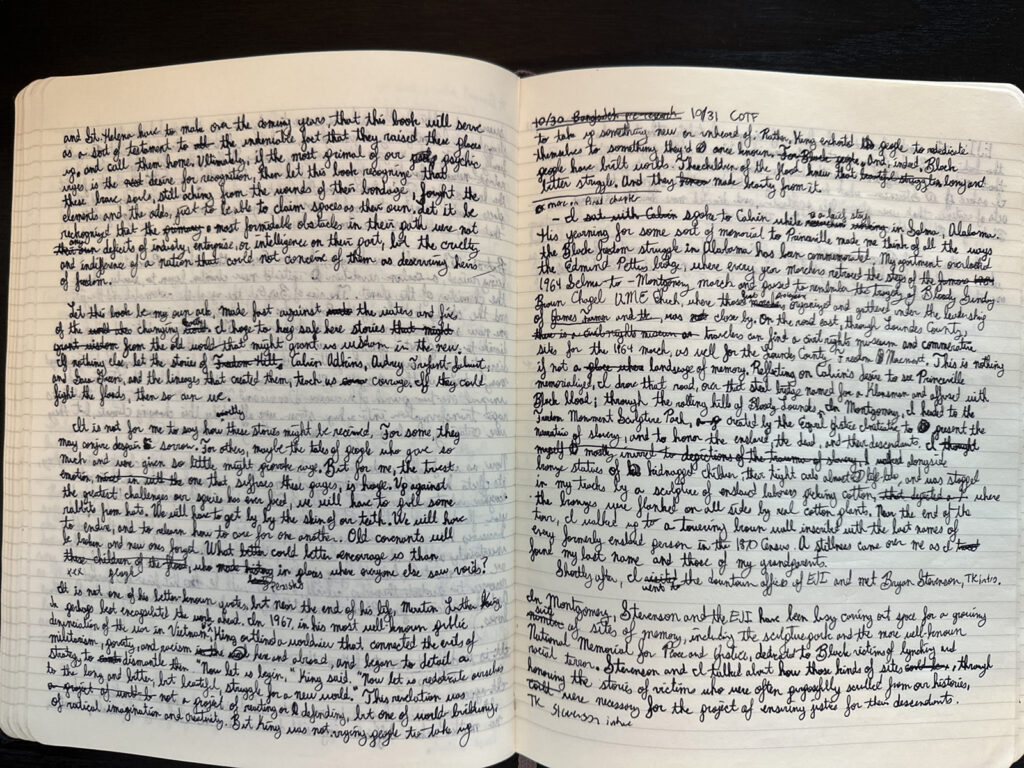 and St. Helena have to make over the coming years, that this book will serve
as a sort of testament to the undeniable fact that they raised these places
up, and call them home. Ultimately, if the most primal of our psychic
urges is the desire for recognition, then let this book recognize that
these brave souls, still aching from the wounds of their bondage, fought the
elements and the odds, just to be able to claim spaces as their own. Let it be
recognized that the most formidable obstacles in their path were not
any defects of industry, enterprise, or intelligence on their part, but the cruelty
and indifference of a nation that could not conceive of them as deserving heirs
of freedom.
Let this book be my own ark, made fast against the waters and fire
of the changing earth. I hope to keep safe here stories that might
from the old world that might grant us wisdom in the new.
If nothing else, let the stories of Freedom Hill, Calvin Adkins, Audrey
and Green, and the lineages that created them, teach us courage. If they could
fight the floods, then so can we.
It is not for me to say how these stories might be received. For some they
may conjure despair & sorrow. For others, maybe the tales of people who gave so
much and were given so little might provoke rage. But for me, the truest
emotion, the one that suffuses these pages, is hope. Up against
the greatest challenges our species has ever faced, we will have to pull some
rabbits from hats. We will have to get by by the skin of our teeth. We will have
to endure, and to relearn how to care for one another. Old covenants will
be broken and new ones forged. What could better encourage us than
children of the flood, who made in places where everyone else saw voids?
It is not one of his better-known quotes, but near the end of his life, Martin Luther King,
Jr perhaps best encapsulated the work ahead. In 1967, in his most well-known public
denunciation of the war in Vietnam, King outlined a worldview that connected the evils of
militarism, poverty, and racism here and abroad, and began to detail a
strategy to dismantle them. "Now let us begin," King said. "Now let us rededicate ourselves
to the long and bitter, but beautiful, struggle for a new world." This revolution was
not a project of reacting or defending, but one of world-building,
of radical imagination and creativity. But King was not urging people to take up
10/30 Bangladesh 10/31 COTF
to take up something new or unheard of. Rather, King exhorted the people to rededicate
themselves to something they'd once known. For Black people, And, indeed, Black
people have built worlds. The children of the flood knew that beautiful struggle long and
bitter struggle. And they made beauty from it.
more on final chapter
- I sat with Calvin spoke to Calvin while in Selma, Alabama.
His yearning for some sort of memorial to Princeville made me think of all the ways
the Black freedom struggle in Alabama has been commemorated. My apartment overlooked
the Edmund Pettus bridge, where every year marchers retraced the steps of the
1964 Selma-to-Montgomery march and paused to remember the tragedy of Bloody Sunday
Brown Chapel AME Church, where those organized and gathered under the leadership
of James and the, was close by. On the road east, through Lowndes County,
travelers can find a civil rights museum and commemorative
sites for the 1964 march, as well for the Lowndes County Freedom. This is nothing
if not a landscape of memory. Reflecting on Calvin's desire to see Princeville
memorialized, I drove that road, over that bridge named for a Klansman and affixed with
Black blood; through the rolling hills of Bloody Lowndes. In Montgomery, I headed to the
Freedom Monument Sculpture Park, created by the Equal Justice Initiative to present the
narrative of slavery, and to honor the enslaved, the dead, and their descendants. I thought
myself mostly inured to depictions of the trauma of slavery. I walked alongside
bronze statues of kidnapped children, their tight curls almost life-like, and was stopped
in my tracks by a sculpture of enslaved laborers picking cotton, where
the bronzes were flanked on all sides by real cotton plants. Near the end of the
tour, I walked up to a towering brown wall inscribed with the last names of
every formerly enslaved person in the 1870 Census. A stillness came over me as I
found my last name and those of my grandparents.
Shortly after, I went to the downtown offices of EJI and met Bryan Stevenson, TK intro.
In Montgomery, Stevenson and the EJI have been busy carving out space for a growing
suite of sites of memory, including the sculpture park and the more well-known
National Memorial for Peace and Justice, dedicated to Black victims of lynching and
racial terror. Stevenson and I talked about how those kinds of sites, through
honoring the stories of victims who were often purposefully scrubbed from our histories,
were necessary for the project of ensuring justice for their descendants.
TK Stevenson intro